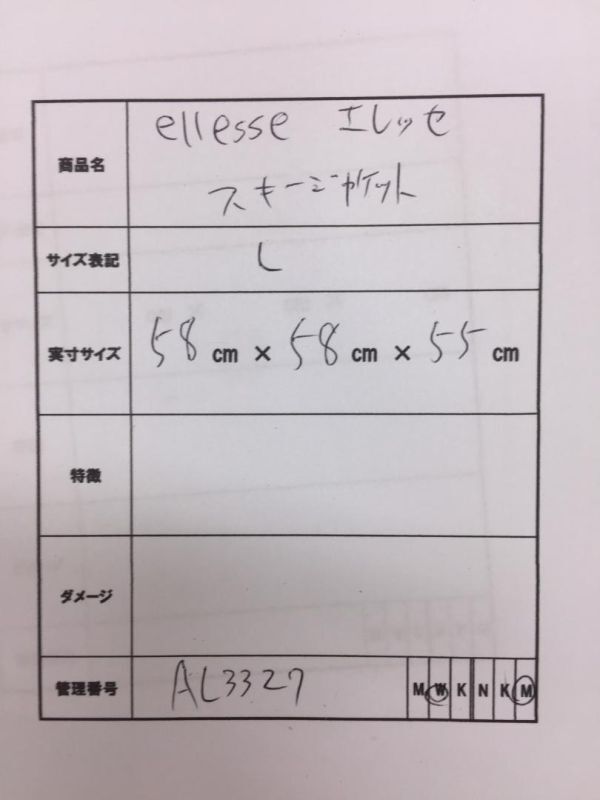 商品名
ellesse エレッセ
スキージャケット
サイズ表記
L
実寸サイズ
58 cm × 58 cm × 55 cm
特徴
ダメージ
管理番号
AL3327
M W K N K M